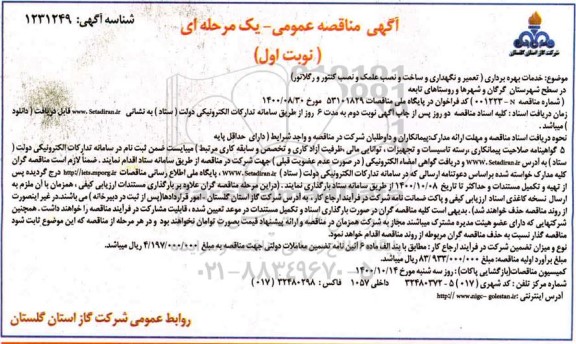 شناسه آگهی: ۱۲۳۱۲۴۹
آگهی مناقصه عمومی- یک مرحله ای
( نوبت اول)
شرکت گاز استان گلستان
موضوع: خدمات بهره برداری ( تعمیر و نگهداری و ساخت و نصب علمک و نصب کنتور و رگلاتور)
در سطح شهرستان گرگان و شهرها و روستاهای تابعه
( شماره مناقصه N - ۰۰۱۲۲۳) کد فراخوان در پایگاه ملی مناقصات ۵۳۱۰۱۸۲۹ مورخ ۱۴۰۰/۰۸/۳۰
زمان دریافت اسناد : کلیه اسناد مناقصه در روز پس از چاپ آگهی نوبت دوم به مدت ۶ روز از طریق سامانه تدارکات الکترونیکی دولت ( ستاد ) به نشانی www. Setadiran.ir قابل دریافت ( دانلود
) میباشد.
نحوه دریافت اسناد مناقصه و مهلت ارائه مدارک:پیمانکاران و داوطلبان شرکت در مناقصه و واجد شرایط ( دارای حداقل پایه
۵ گواهینامه صلاحیت پیمانکاری برسته تاسیسات و تجهیزات ، توانایی مالی ،ظرفیت آزاد کاری و تخصص و سابقه کاری مرتبط ) میبایست ضمن ثبت نام در سامانه تدارکات الکترونیکی دولت (
ستاد ) به آدرس www. Setadiran.ir و دریافت گواهی امضاء الکترونیکی ( در صورت عدم عضویت قبلی ) جهت شرکت در مناقصه از طریق سامانه ستاد اقدام نمایند . ضمنا لازم است مناقصه گران
کلیه مدارک خواسته شده براساس دعوتنامه ارسالی که در سامانه تدارکات الکترونیکی دولت ( ستاد ) www. Setadiran.ir ، پایگاه ملی اطلاع رسانی مناقصات http://iets.mporg.ir درج گردیده پس
از تهیه و تکمیل مستندات و حداکثر تا تاریخ ۱۴۰۰/۱۰/۰۸ از طریق سامانه ستاد بارگذاری نمایند . (دراین مرحله مناقصه گران علاوه بر بارگذاری مستندات ارزیابی کیفی ، همزمان با آن ملزم به
ارسال نسخه کاغذی اسناد ارزیابی کیفی و پاکت ضمانت نامه شرکت در فرآیند ارجاع کار ، به آدرس شرکت گاز استان گلستان ،امور قراردادها(پس از ثبت در دبیرخانه ) می باشند.در غیر اینصورت
از روند مناقصه حذف خواهند شد). بدیهی است کلیه مناقصه گران در صورت بارگذاری اسناد و تکمیل مستندات در موعد تعیین شده ، قابلیت مشارکت در فرآیند مناقصه را خواهند داشت . همچنین
شرکتهایی که دارای عضو هیئت مدیره مشترک میباشند مجاز به شرکت همزمان در مناقصه و ارائه پیشنهاد قیمت بصورت توامان نخواهند بود و در هر مرحله از مناقصه که این موضوع ثابت شود
مناقصه گذار نسبت به حذف مناقصه گران مربوطه از روند مناقصه اقدام خواهد نمود.
نوع و میزان تضمین شرکت در فرآیند ارجاع کار : مطابق با بند الف ماده ۶ آئین نامه تضمین معاملات دولتی جهت مناقصه به مبلغ ۴/۱۹۷/۰۰۰/۰۰۰ ریال میباشد.
مبلغ برآورد اولیه مناقصه: مبلغ ۸۳/۹۳۳/۰۰۰/۰۰۰ ریال میباشد.
کمیسیون مناقصات(بازگشایی پاکات) : روز سه شنبه مورخ ۱۴۰۰/۱۰/۱۴
شماره مرکز تلفن : کد شهری (۰۱۷) ۵ - ۳۲۴۸۰۳۷۲ داخلی ۱۰۵۷ فاکس : ۳۲۴۸۰۲۹۸ (۰۱۷)
آدرس اینترنتی :http:// www.nigc- golestan.ir
۰۲۱-۸۸۳۴۹۶۷۰-۵
روابط عمومی شرکت گاز استان گلستان